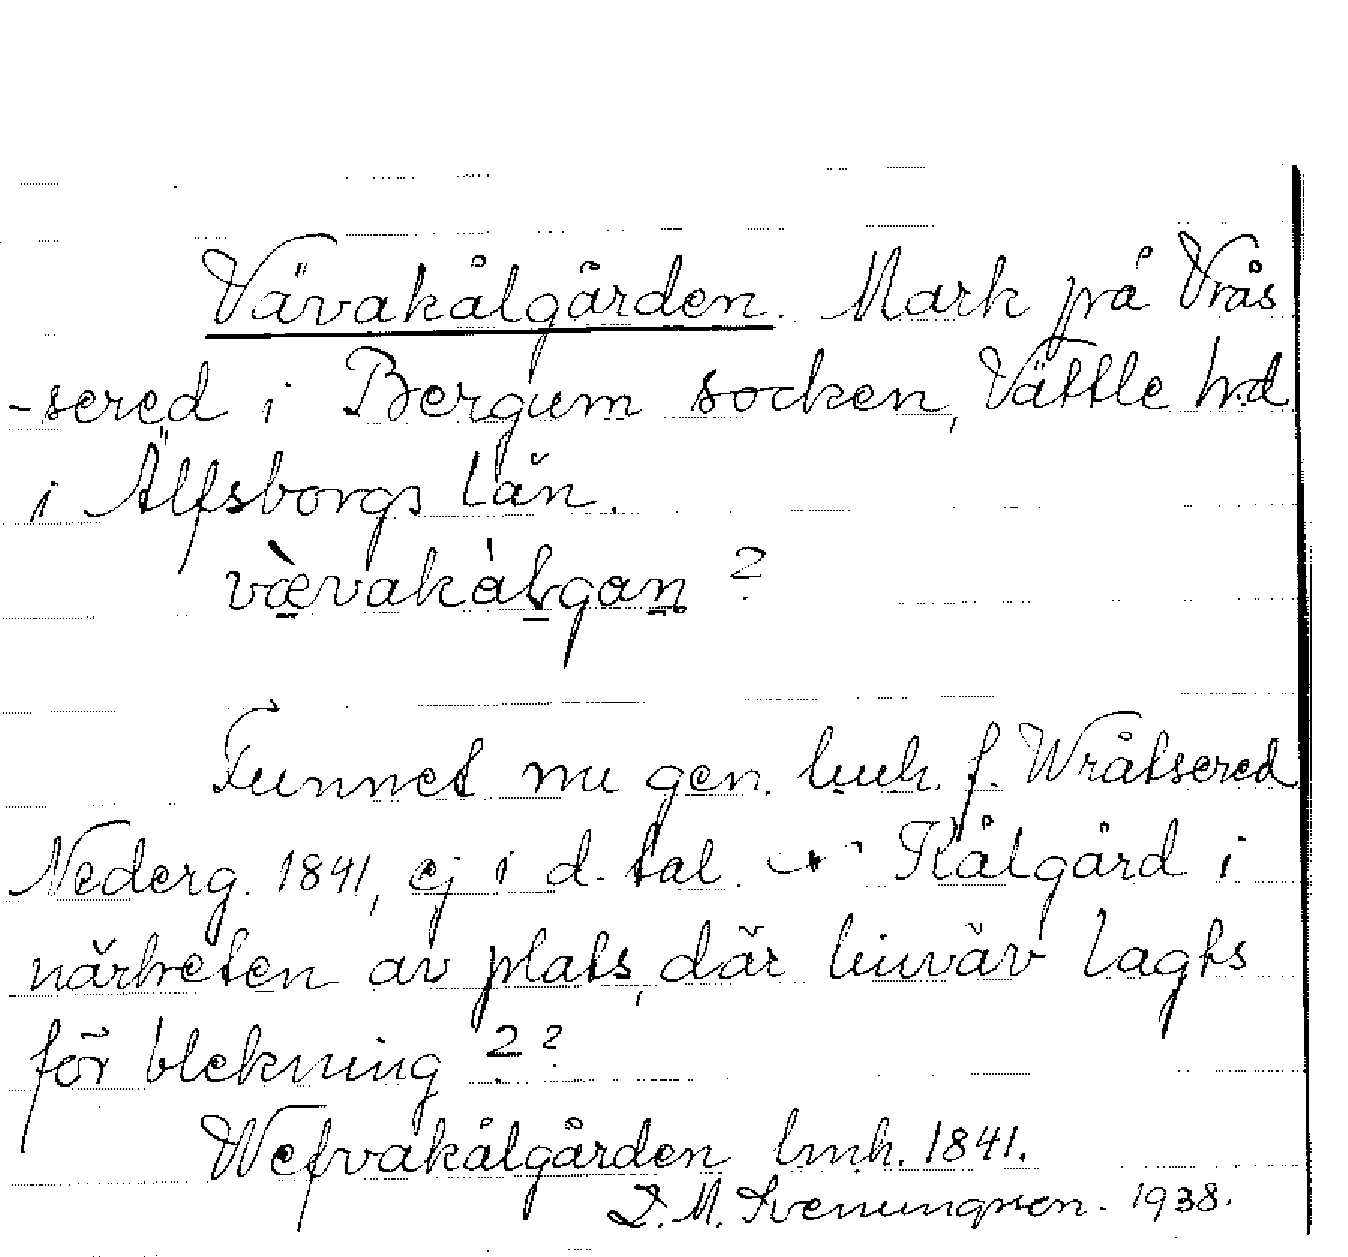 Vävakålgården. Mark på Vrås
-sered i Bergum socken, Vättle hd
i Älfsborgs län.
væ̀vakàlgan ?
Funnet nu gen. lmh. f. Wråtsered
Nederg. 1841, ej i d. tal. Kålgård i
närheten av plats, där linväv lagts
för blekning ? ?
Wefvakålgården lmh. 1841.
D. M. Sveningsson. 1938.